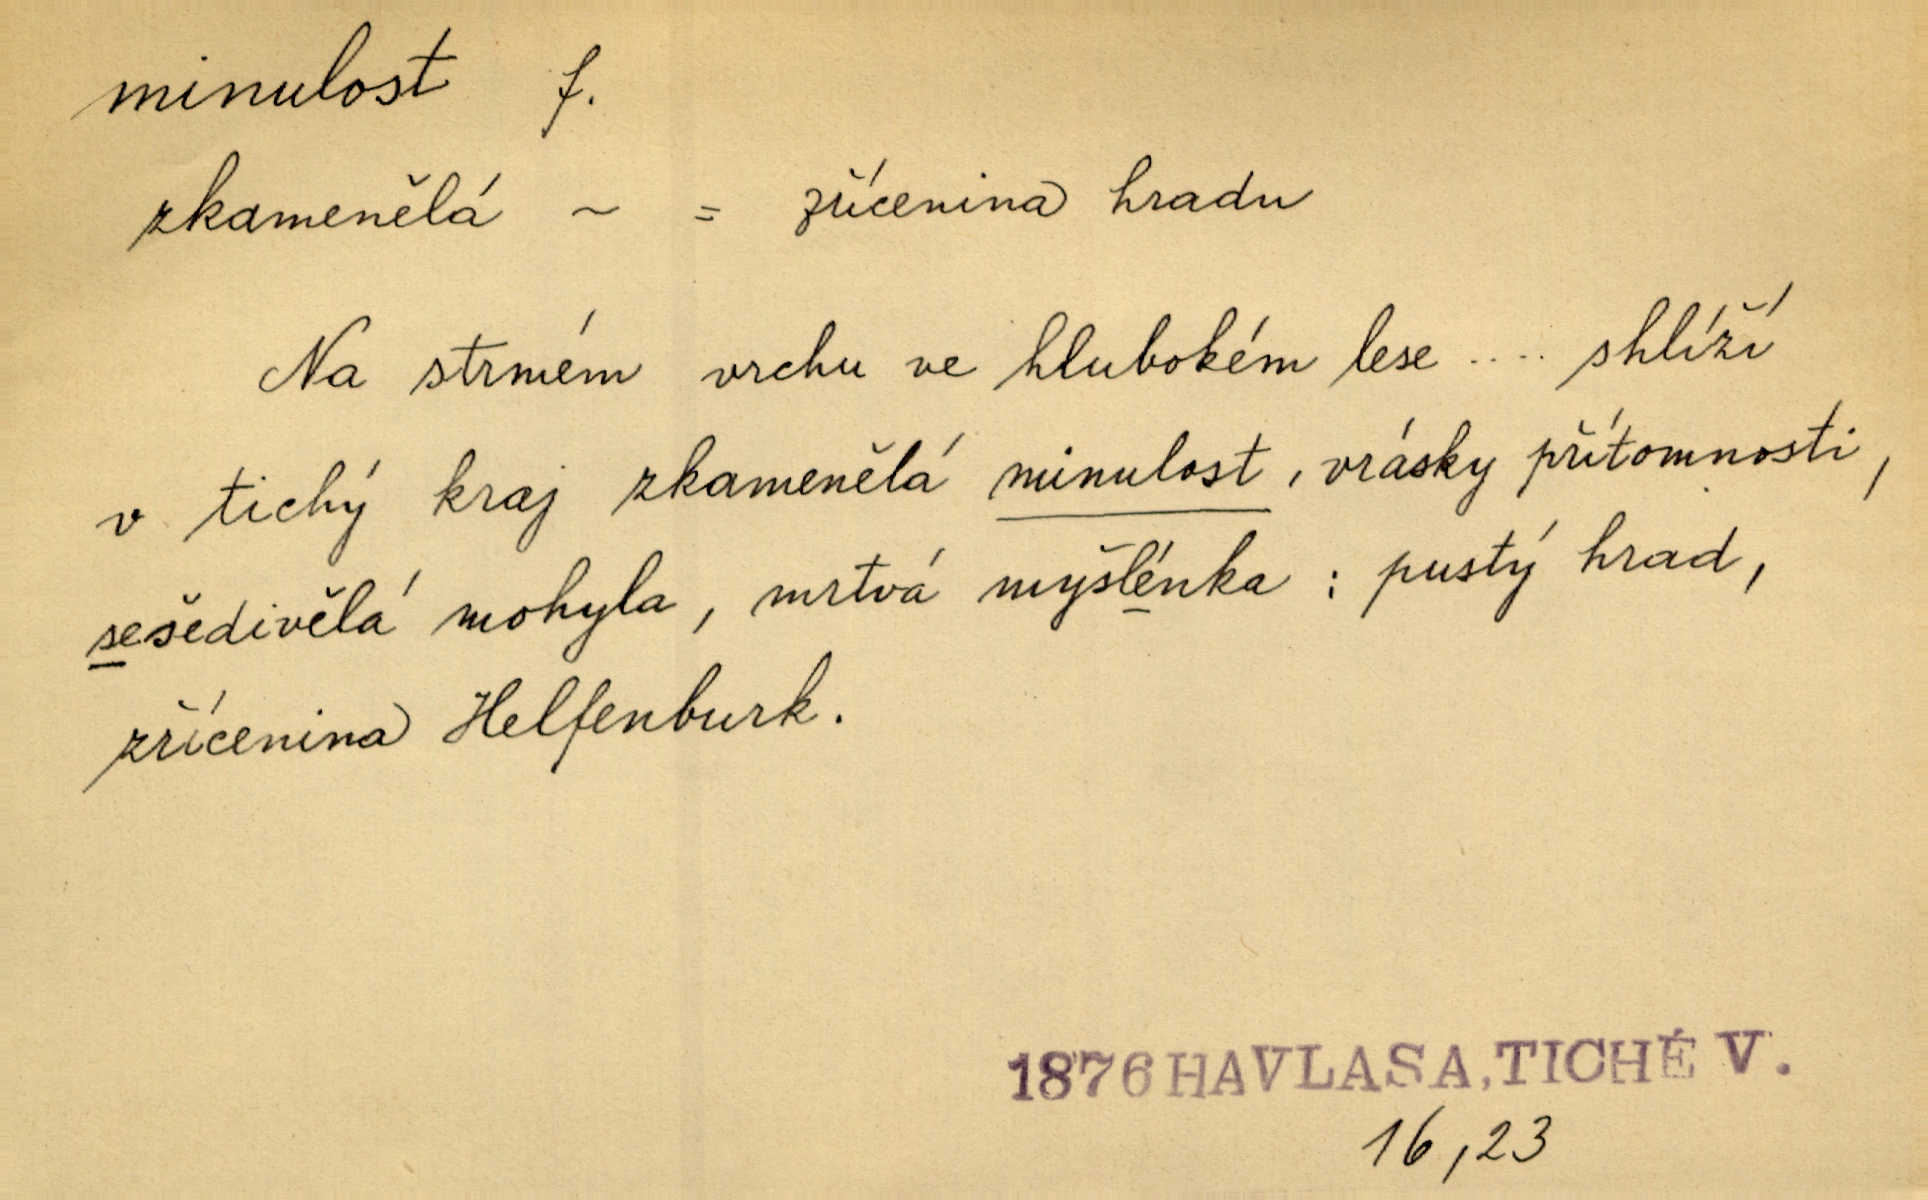 minulost f.
zkamenělá ~ = zřícenina hradu
Na strmém vrchu ve hlubokém lese .... shlíží
v tichý kraj zkamenělá minulost, vrásky přítomnosti,
sešedivělá mohyla, mrtvá myšlénka : pustý hrad,
zřícenina Helfenburk.
1876 HAVLASA, TICHÉ V.
16,23